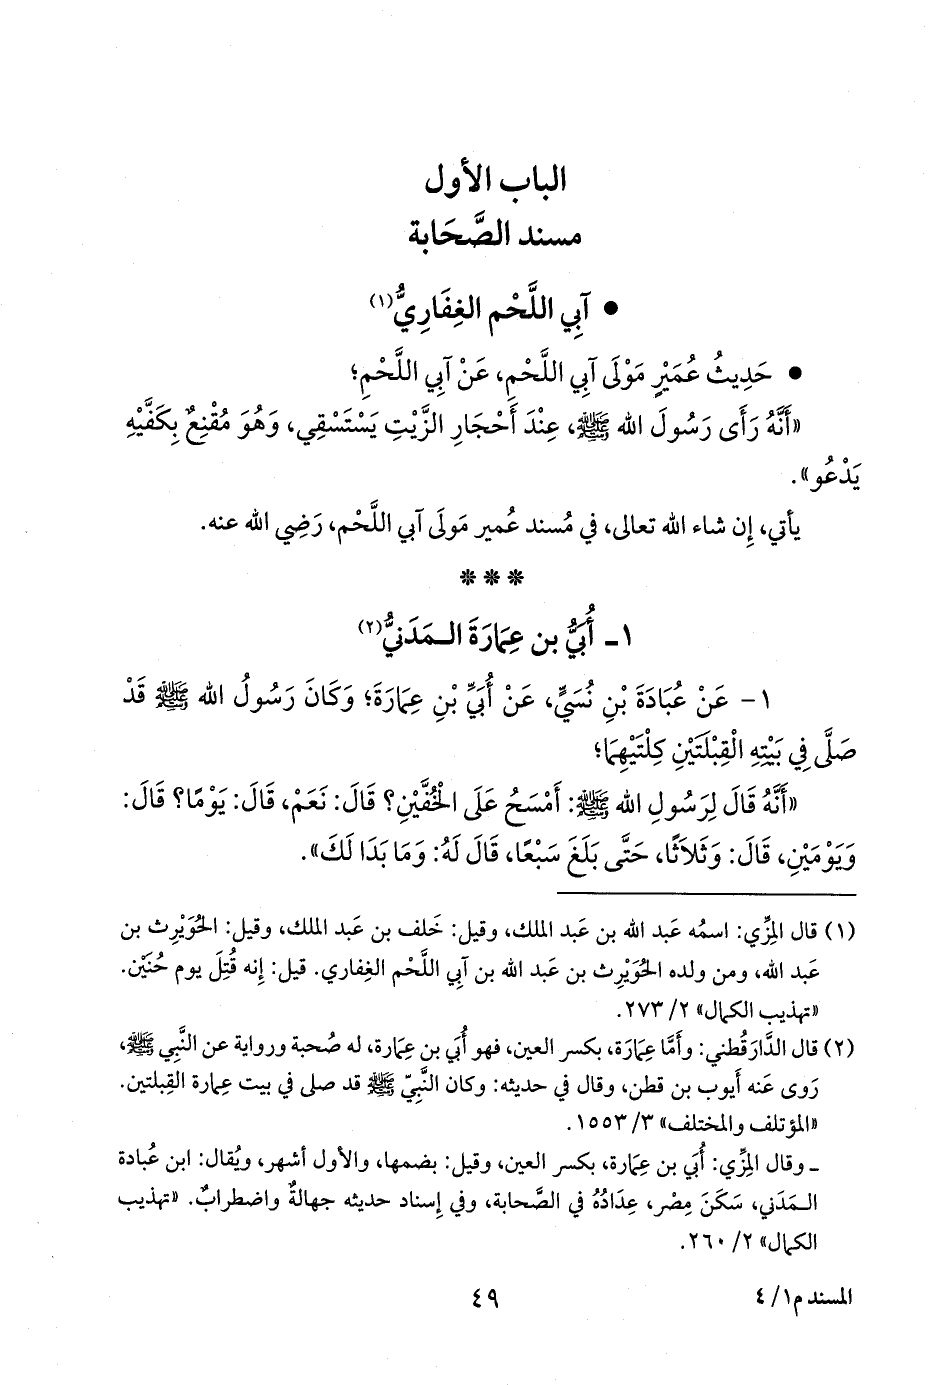 الباب الأول
مسند الصَّحَابة
• آبِي اللَّحْم الغِفَارِيُّ(١)
• حَدِيثُ عُمَيْرٍ مَوْلَى آبِي اللَّحْمِ، عَنْ آبِي اللَّحْمِ؛
«أَنَّهُ رَأَى رَسُولَ الله ﷺ، عِنْدَ أَحْجَارِ الزَّيْتِ يَسْتَسْقِي، وَهُوَ مُقْنِعٌ بِكَفَّيْهِ
يَدْعُو».
يأتي، إِن شاء الله تعالى، في مُسند عُمير مَولَى آبي اللَّحْم، رَضِي الله عنه.
***
١ـ أُبَيُّ بن عِمَارَةَ الـمَدَنيُّ(٢)
١- عَنْ عُبَادَةَ بْنِ نُسَيٍّ، عَنْ أُبَيِّ بْنِ عِمَارَةَ؛ وَكَانَ رَسُولُ الله ﷺ قَدْ
صَلَّى فِي بَيْتِهِ الْقِبْلَتَيْنِ كِلْتَيْهِمَا؛
«أَنَّهُ قَالَ لِرَسُولِ الله ﷺ: أَمْسَحُ عَلَى الْخُفَّيْنِ؟ قَالَ: نَعَمْ، قَالَ: يَوْمًا؟ قَالَ:
وَيَوْمَيْنِ، قَالَ: وَثَلاَثًا، حَتَّى بَلَغَ سَبْعًا، قَالَ لَهُ: وَمَا بَدَا لَكَ».
(١) قال المِزِّي: اسمُه عَبد الله بن عَبد الملك، وقيل: خَلف بن عَبد الملك، وقيل: الحُوَيْرِث بن
عَبد الله، ومن ولده الحُوَيْرِث بن عَبد الله بن آبي اللَّحْم الغِفاري. قيل: إِنه قُتِلَ يوم حُنَيْن.
«تهذيب الكمال» ٢/ ٢٧٣.
(٢) قال الدَّارَقُطني: وأَمَّا عِمَارَة، بكسر العين، فهو أُبَي بن عِمَارة، له صُحبة ورواية عن النَّبي ﷺ،
رَوى عَنه أَيوب بن قطن، وقال في حديثه: وكان النَّبيّ ﷺ قد صلى في بيت عِمارة القِبلتين.
«المؤتلف والمختلف» ٣/ ١٥٥٣.
ـ وقال المِزِّي: أُبَي بن عِمَارة، بكسر العين، وقيل: بضمها، والأول أشهر، ويُقال: ابن عُبادة
الـمَدَني، سَكَنَ مِصْر، عِدَادُهُ في الصَّحابة، وفي إِسناد حديثه جهالةٌ واضطرابٌ. «تهذيب
الكمال» ٢/ ٢٦٠.
المسند م١/ ٤
٤٩